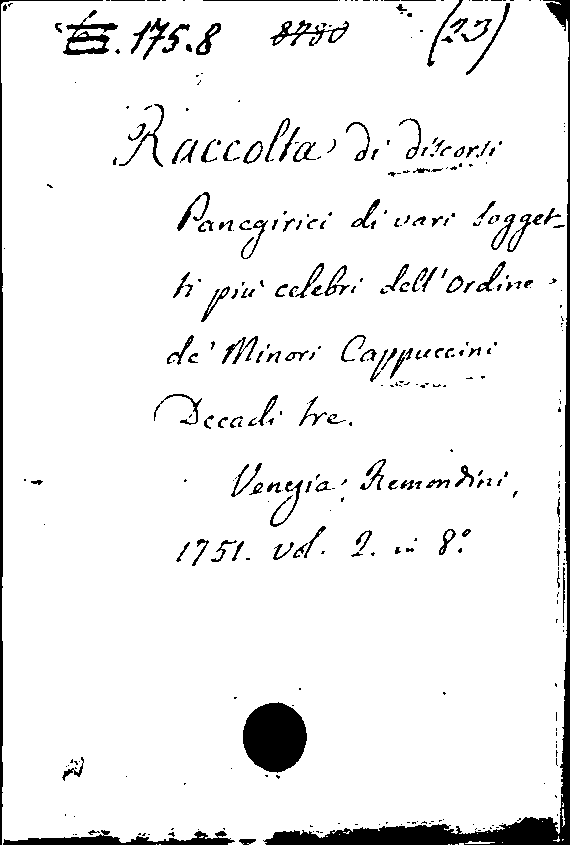 175.8 8780 (23)
Raccolta di discorsi
Panegirici di vari sogget-
ti più celebri dell'ordine
de' Minori Cappuccini
Decadi tre.
Venezia: Remondini,
1751. vol. 2. in 8º